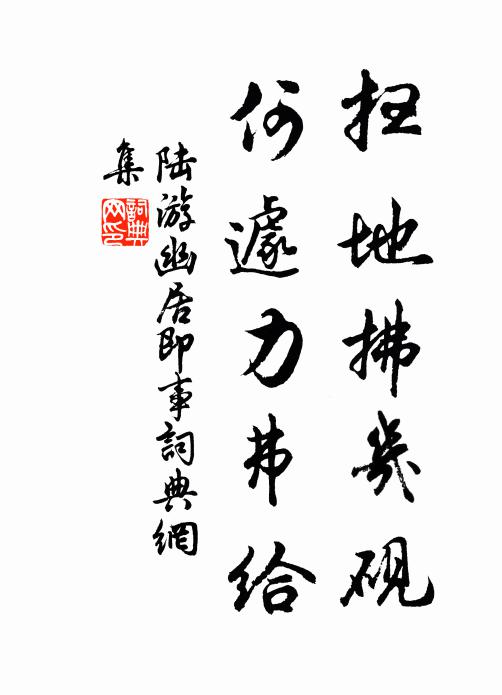 扫地拂几砚
何遽力弗给
陆游幽居即事词典網
集
詞典
网印